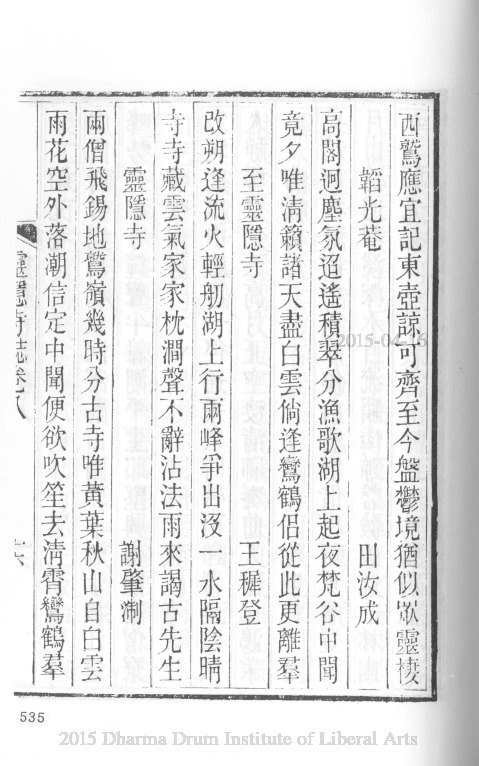 西鷲應宜記東壺諒可齊至今盤鬱境猶似歘靈棲
韜光菴 田汝成
高閣迥塵氛迢遙積翠分漁歌湖上起夜梵谷中聞
竟夕唯清籟諸天盡白雲倘逢鸞鶴侶從此更離羣
至靈隱寺 王穉登
改朔逢流火輕舠湖上行兩峰爭出沒一水隔陰晴
寺寺藏雲氣家家枕澗聲不辭沾法雨來謁古先生
靈隱寺 謝肇淛
兩僧飛錫地鷲嶺幾時分古寺唯黃葉秋山自白雲
雨花空外落潮信定中聞便欲吹笙去清霄鸞鶴羣
靈隱寺誌卷八
十六
2015-04-16
535
2015 Dharma Drum Institute of Liberal Arts